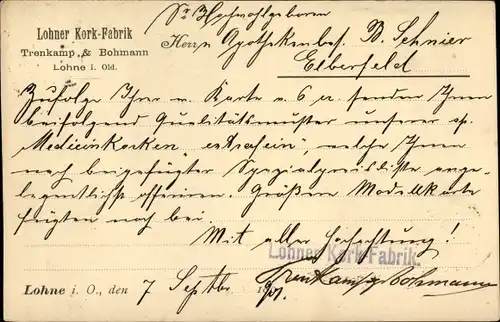 Lohner Kork-Fabrik
Trenkamp & Bohmann
Lohne i. Old.
Sr. Hochwohlgeboren
Herrn Apothekenbes. B. Schnier
Elberfeld
Zufolge Ihrer w. Karte v. 6 cr. senden Ihnen
beifolgend Qualitätsmuster unserer sp.
Medicinkorken „extrafein", welche Ihnen
nach beigefügter Spezialpreisliste ange-
legentlichst offeriren. Größen Modellkarte
fügten noch bei.
Mit aller Hochachtung!
Lohner Kork-Fabrik
Trenkamp & Bohmann
Lohne i. O., den 7 Septbr. 1901.